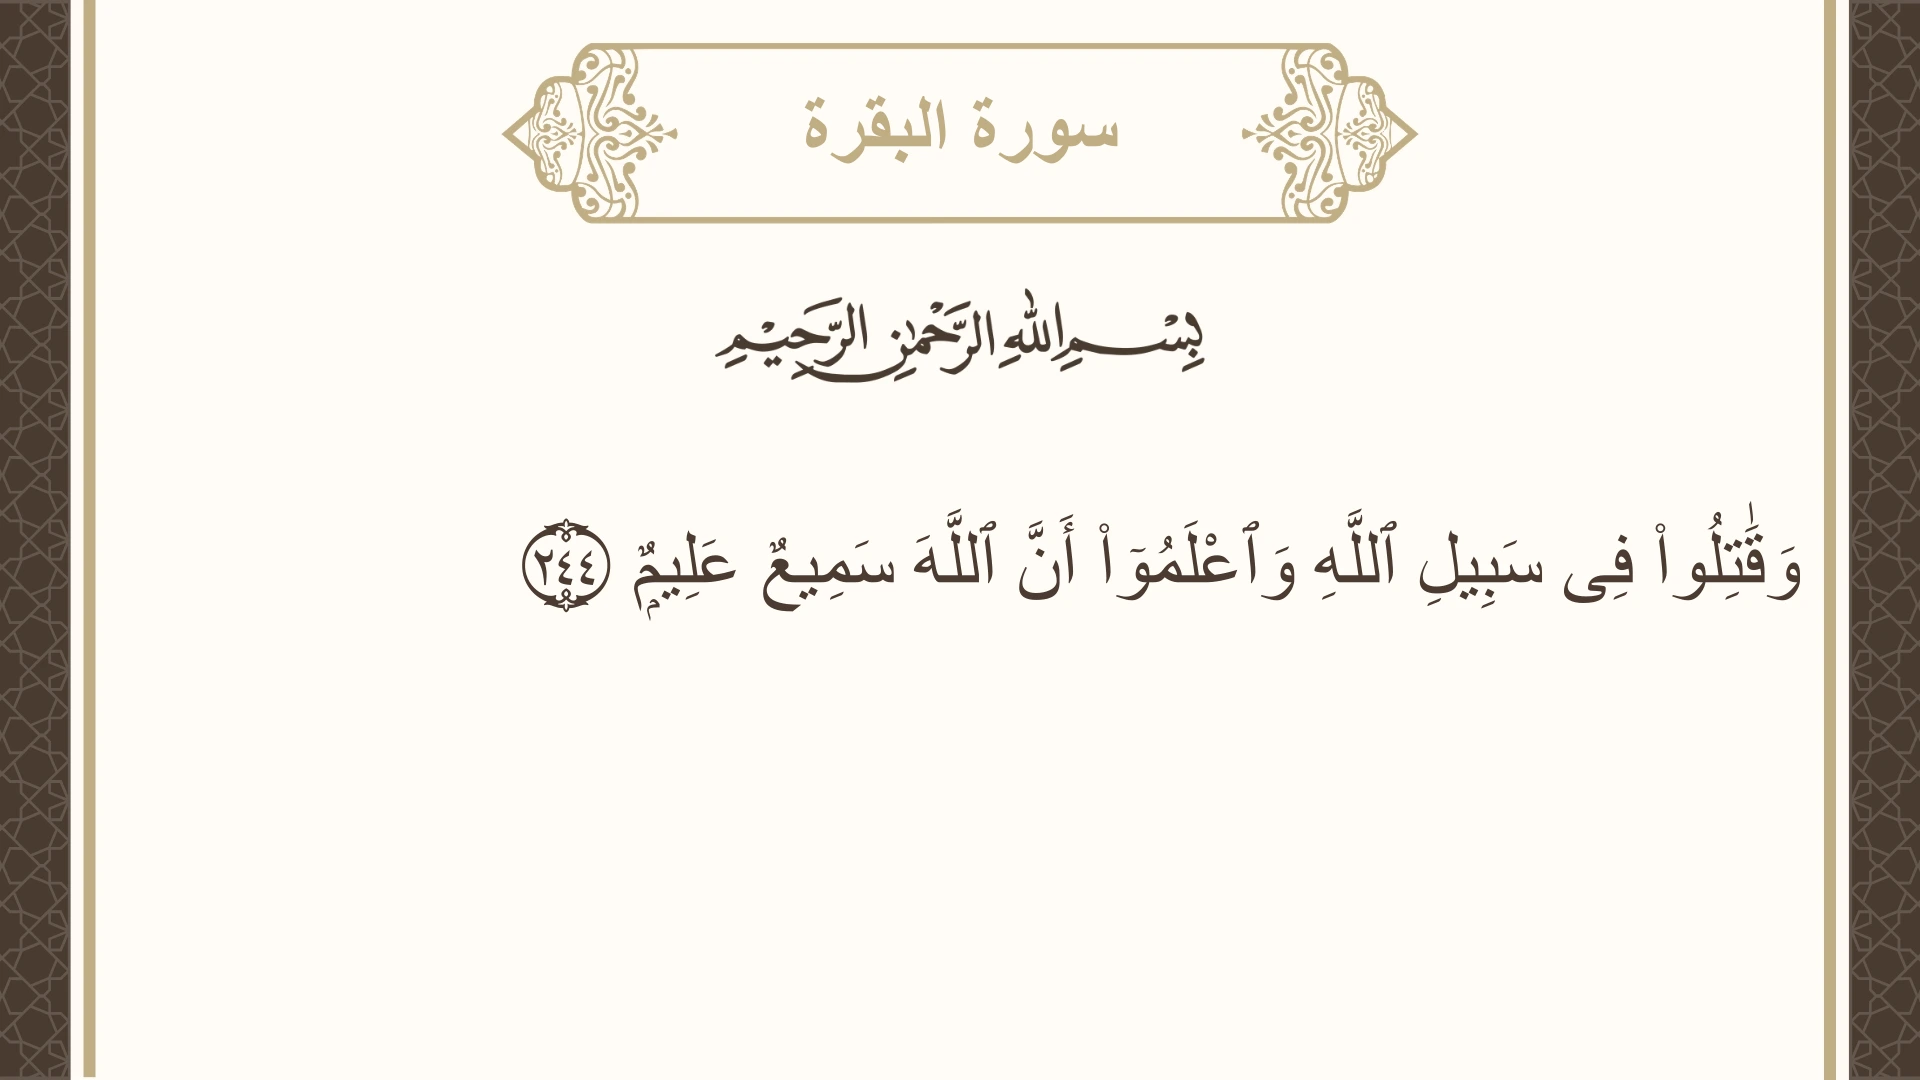 سورة البقرة
بِسْمِ اللهِ الرَّحْمٰنِ الرَّحِيْمِ
وَقَٰتِلُوا۟ فِى سَبِيلِ ٱللَّهِ وَٱعْلَمُوٓا۟ أَنَّ ٱللَّهَ سَمِيعٌ عَلِيمٌۭ ٢٤٤